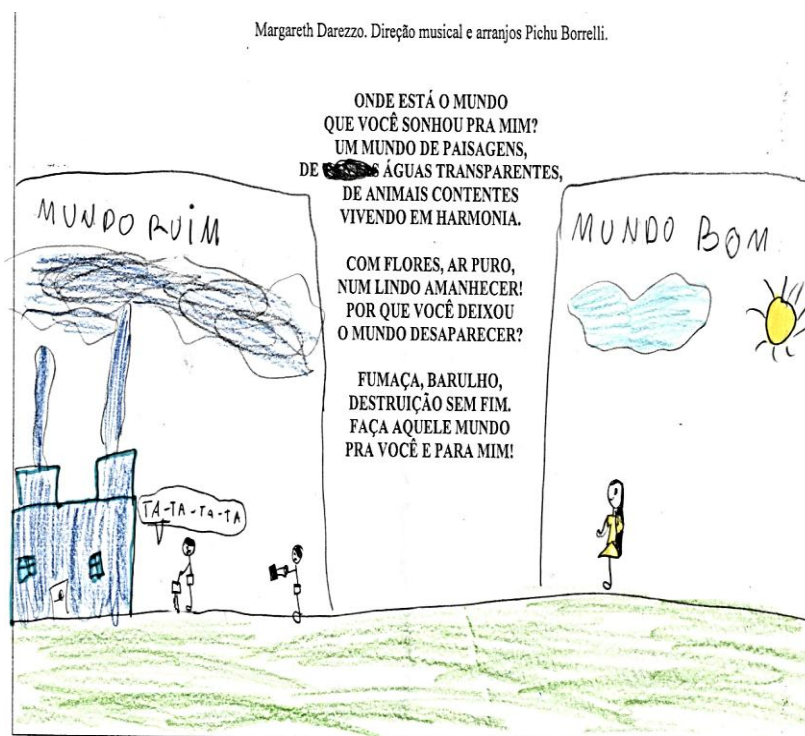 Margareth Darezzo. Direção musical e arranjos Pichu Borrelli.
ONDE ESTÁ O MUNDO
QUE VOCÊ SONHOU PRA MIM?
UM MUNDO DE PAISAGENS,
DE ÁGUAS TRANSPARENTES,
DE ANIMAIS CONTENTES
VIVENDO EM HARMONIA.
COM FLORES, AR PURO,
NUM LINDO AMANHECER!
POR QUE VOCÊ DEIXOU
O MUNDO DESAPARECER?
FUMAÇA, BARULHO,
DESTRUIÇÃO SEM FIM.
FAÇA AQUELE MUNDO
PRA VOCÊ E PARA MIM!
MUNDO RUIM
TA-TA-TA-TA
MUNDO BOM